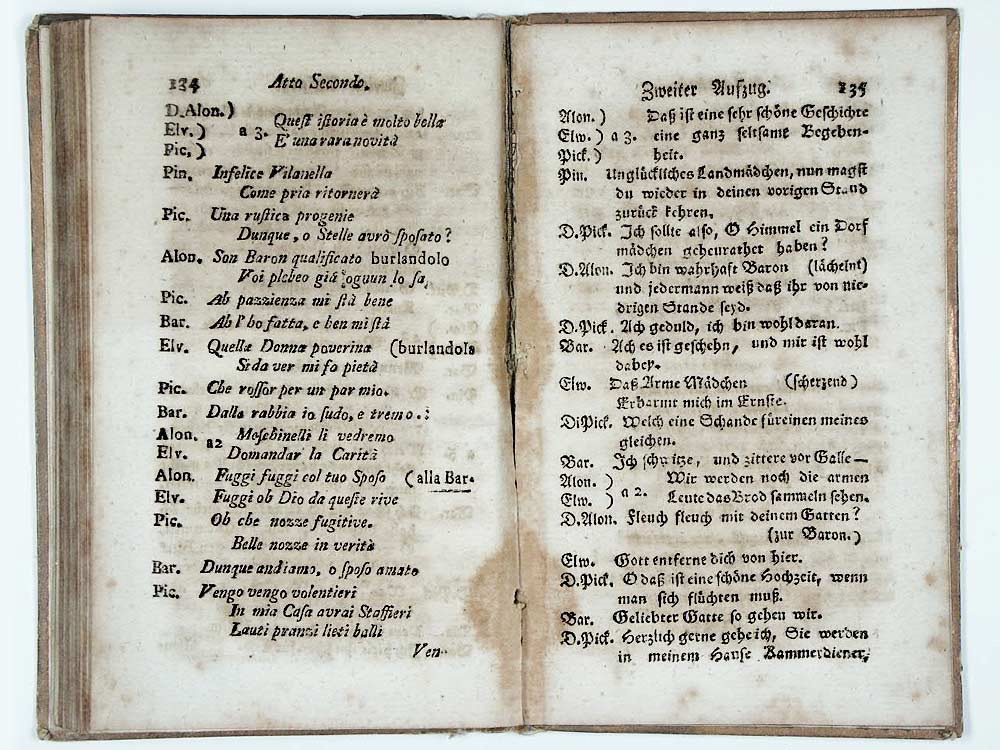 134 Atto Secondo.
D. Alon. )
Elv. ) a 3. Quest' istoria è molto bella
Pic. ) E' una rara novità
Pin. Infelice Vilanella
Come pria ritornerà
Pic. Una rustica progenie
Dunque, o Stelle avrò sposato?
Alon. Son Baron qualificato burlandolo
Voi plebeo già ognun lo sa,
Pic. Ah pazzienza mi stà bene
Bar. Ah l' ho fatta, e ben mi stà
Elv. Quella Donna poverina (burlandola
Si da ver mi fa pietà
Pic. Che rossor per un par mio.
Bar. Dalla rabbia io sudo, e tremo.
Alon. a2 Moschinelli li vedremo
Elv. Domandar la Carità
Alon. Fuggi fuggi col tuo Sposo (alla Bar.
Elv. Fuggi oh Dio da queste rive
Pic. Oh che nozze fugitive.
Belle nozze in verità
Bar. Dunque andiamo, o sposo amato
Pic. Vengo vengo volentieri
In mia Casa avrai Staffieri
Lauti pranzi lieti balli
Ven-
Zweiter Aufzug. 135
Alon. ) Daß ist eine sehr schöne Geschichte
Elw. ) a 3. eine ganz seltsame Begeben-
Pick. ) heit.
Pin. Unglückliches Landmädchen, nun magst
du wieder in deinen vorigen Stand
zurück kehren.
D. Pick. Ich sollte also, O Himmel ein Dorf
mädchen geheurathet haben?
D. Alon. Ich bin wahrhaft Baron (lächelnt)
und jedermann weiß daß ihr von nie-
drigen Stande seyd.
D. Pick. Ach geduld, ich bin wohl daran.
Bar. Ach es ist geschehn, und mir ist wohl
dabey.
Elw. Daß Arme Mädchen (scherzend)
Erbarmt mich im Ernste.
Di Pick. Welch eine Schande für einen meines
gleichen.
Bar. Ich schwitze, und zittere vor Galle—
Alon. ) Wir werden noch die armen
Elw. ) a 2. Leute das Brod sammeln sehen.
D. Alon. Fleuch fleuch mit deinem Gatten?
(zur Baron.)
Elw. Gott entferne dich von hier.
D. Pick. O daß ist eine schöne Hochzeit, wenn
man sich flüchten muß.
Bar. Geliebter Gatte so gehen wir.
D. Pick. Herzlich gerne gehe ich, Sie werden
in meinem Hause Kammerdiener,